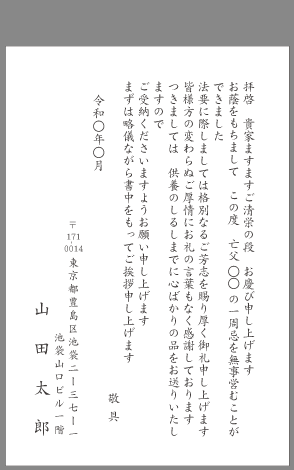 拝啓　貴家ますますご清栄の段　お慶び申し上げます
お蔭をもちまして　この度　亡父〇〇の一周忌を無事営むことが
できました
法要に際しましては格別なるご芳志を賜り厚く御礼申し上げます
皆様方の変わらぬご厚情にお礼の言葉もなく感謝しております
つきましては　供養のしるしまでに心ばかりの品をお送りいたし
ますので
ご受納くださいますようお願い申し上げます
まずは略儀ながら書中をもってご挨拶申し上げます
敬具
令和〇年〇月
〒171-0014
東京都豊島区池袋二ー三七ー一
池袋山口ビル一階
山田太郎